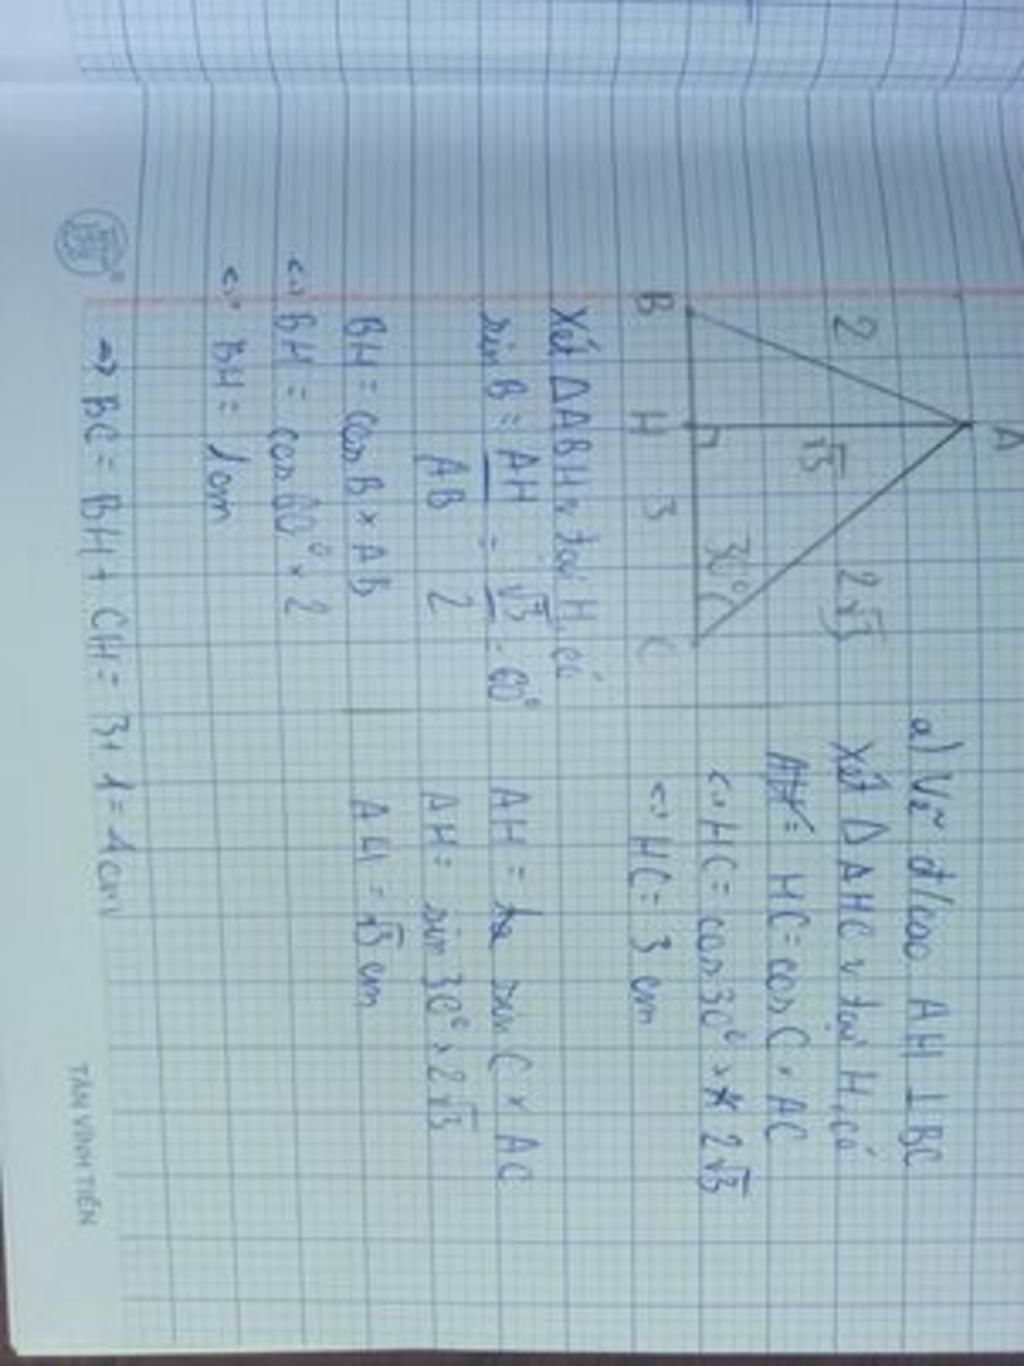 A
2
√3
2√3
30°
B
H
3
C
a) Vẽ đ/cao AH ⊥ BC
Xét ΔAHC v tại H, có
HC = cos C × AC
<=> HC = cos 30° × 2√3
<=> HC = 3 cm
AH = sin C × AC
AH = sin 30° × 2√3
AH = √3 cm
Xét ΔABH v tại H, có
sin B = AH/AB = √3/2 = 60°
BH = cos B × AB
<=> BH = cos 60° × 2
<=> BH = 1cm
=> BC = BH + CH = 3 + 1 = 4cm
TÂN VĨNH TIẾN